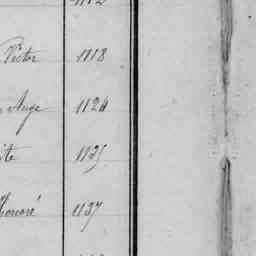 Victor 1118
Ange 1124
ite 1135
Honoré 1137